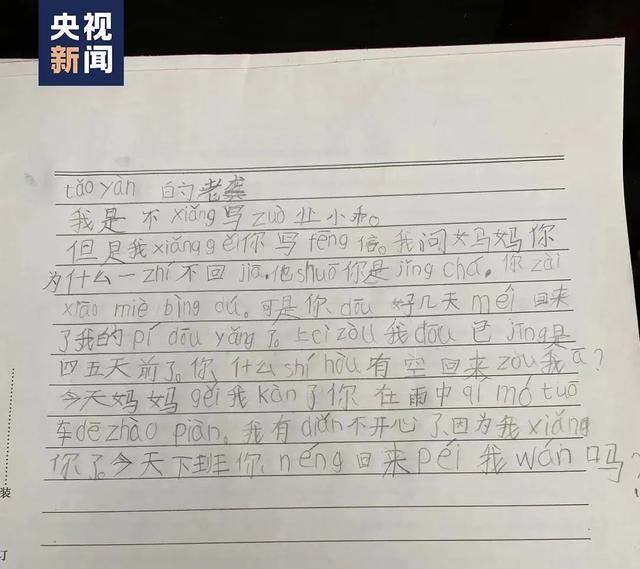 央视
新闻
tǎo yàn 的老龚
我是不xiǎng写zuò业小和。
但是我xiǎng gěi你写fēng信。我问妈妈你
为什么一zhí不回jiā。他shuō你是jǐng chá。你zài
xiāo miè bìng dú。可是你dōu好几天méi回来
了我的pí dōu yǎng了。上cì zòu我dōu已jīng是
四五天前了。你什么shí hòu有空回来zòu我ā？
今天妈妈gěi我kàn了你在雨中qí mó tuō
车dē zhào piàn。我有diǎn不开心了因为我xiǎng
你了。今天下班你néng回来péi我wán吗？
装
订